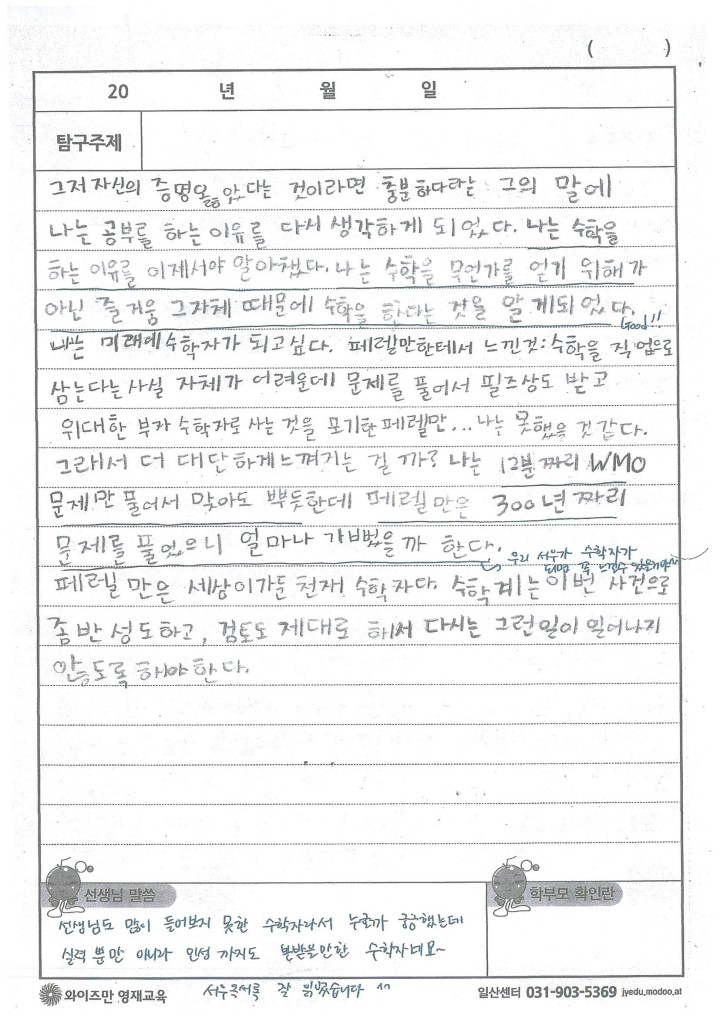 ( )
20 년 월 일
탐구주제
그저 자신의 증명을 았다는 것이라면 충분하다라는 그의 말에
나는 공부를 하는 이유를 다시 생각하게 되었다. 나는 수학을
하는 이유를 이제서야 알아챘다. 나는 수학을 무언가를 얻기 위해가
아닌 즐거움 그자체 때문에 수학을 한다는 것을 알게되었다.
Good!!
나는 미래에 수학자가 되고싶다. 페렐만한테서 느낀것: 수학을 직업으로
삼는다는 사실 자체가 어려운데 문제를 풀어서 필즈상도 받고
위대한 부자 수학자로 사는 것을 포기한 페렐만... 나는 못했을 것 같다.
그래서 더 대단하게 느껴지는 걸 까? 나는 12분 짜리 WMO
문제만 풀어서 맞아도 뿌듯한데 페렐만은 300년 짜리
문제를 풀었으니 얼마나 기뻤을까 한다.
우리 서우가 수학자가
되면 꼭 느낄수
페렐만은 세상이 가둔 천재 수학자다. 수학계는 이번 사건으로
좀 반성도하고, 검토도 제대로 해서 다시는 그런일이 일어나지
않도록 해야한다.
선생님 말씀
학부모 확인란
선생님도 많이 들어보지 못한 수학자라서 누굴까 궁금했는데
실력 뿐만 아니라 인성 까지도 본받을만한 수학자네요~
서우독서록 잘 읽었습니다 ^^
와이즈만 영재교육
일산센터 031-903-5369 jyedu.modoo.at